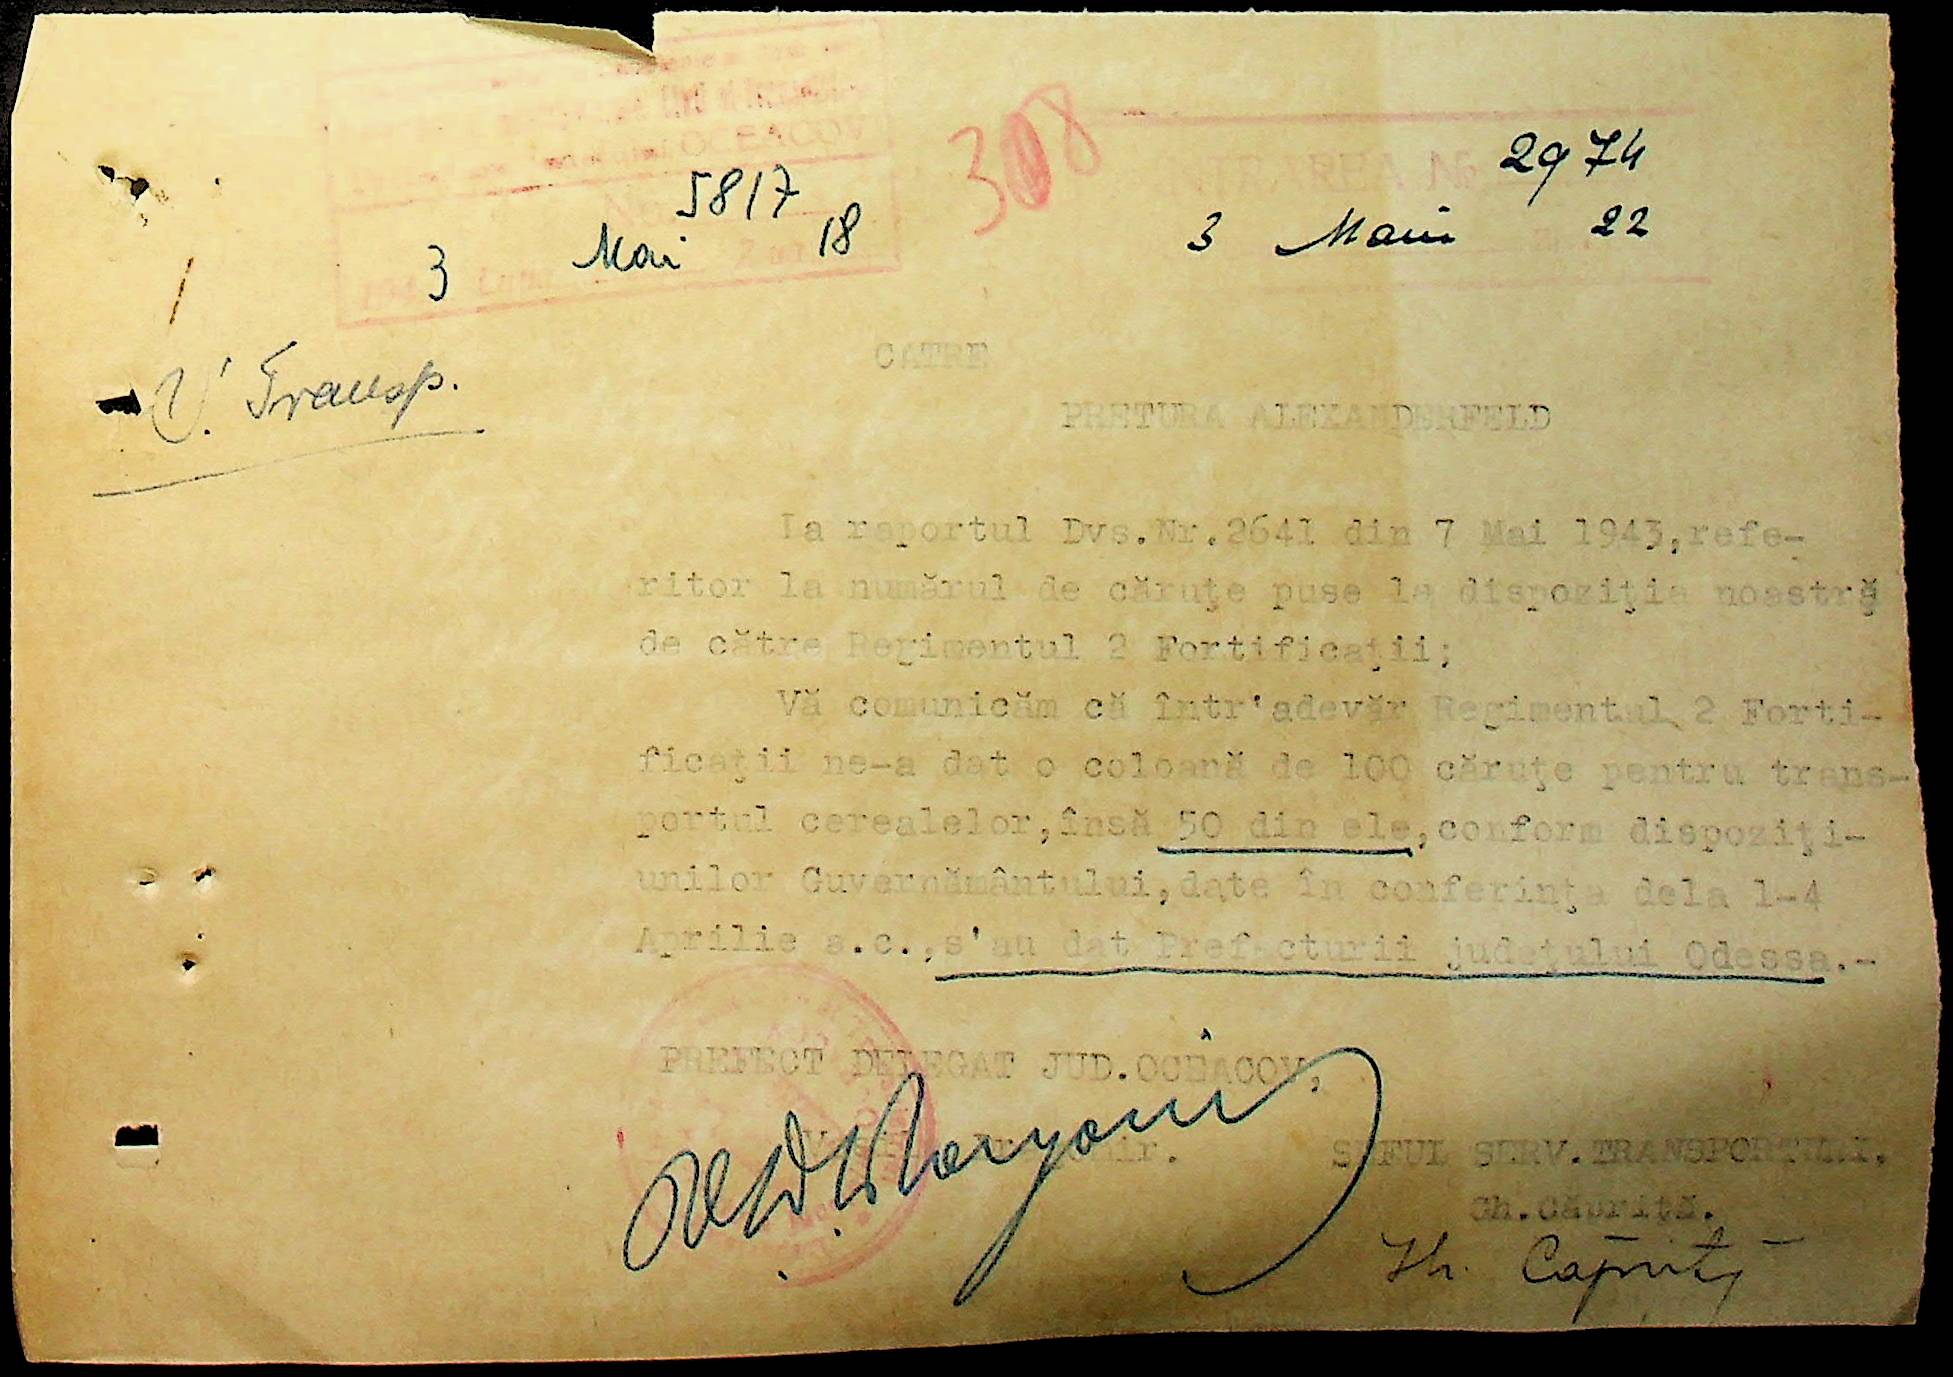 OCEACOV
No
5817
3 Mai 18
308
INTRAREA No 2974
3 Mai 22
V. Transp.
CATRE
PRETURA ALEXANDERFELD
La raportul Dvs.Nr.2641 din 7 Mai 1943,refe-
ritor la numărul de căruţe puse la dispoziţia noastră
de către Regimentul 2 Fortificaţii;
Vă comunicăm că într'adevăr Regimentul 2 Forti-
ficaţii ne-a dat o coloană de 100 căruţe pentru trans-
portul cerealelor,însă 50 din ele,conform dispoziţi-
unilor Guvernământului,date în conferinţa dela 1-4
Aprilie a.c.,s'au dat Prefecturii judeţului Odessa.-
PREFECT DELEGAT JUD.OCEACOV,
SEFUL SERV.TRANSPORTURI,
Gh.Căpriţă.
Gh. Capriţă